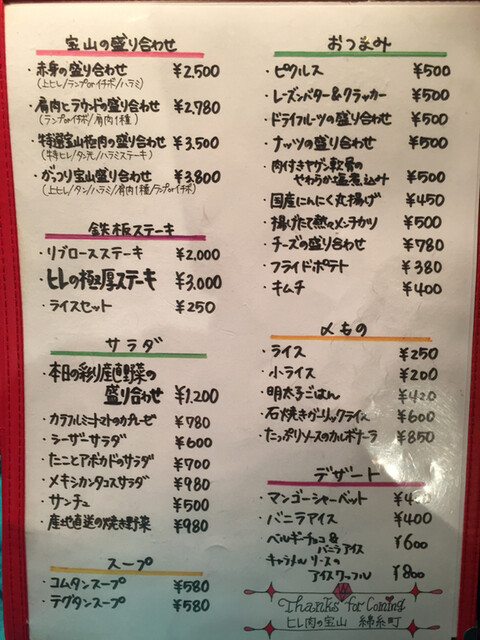 宝山の盛り合わせ
・赤身の盛り合わせ ¥2,500
(上ヒレ/ランプorイチボ/ハラミ)
・肩肉とラウンドの盛り合わせ ¥2,780
(ランプorイチボ/肩肉1種)
・特選宝山極肉の盛り合わせ ¥3,500
(特ヒレ/タン元/ハラミステーキ)
・がっつり宝山盛り合わせ ¥3,800
(上ヒレ/タン/ハラミ/肩肉1種/ランプorイチボ)
鉄板ステーキ
・リブロースステーキ ¥2,000
・ヒレの極厚ステーキ ¥3,000
・ライスセット ¥250
サラダ
・本日の彩り産直野菜の
盛り合わせ ¥1,200
・カラフルミニトマトのカプレーゼ ¥780
・シーザーサラダ ¥600
・たことアボカドのサラダ ¥700
・メキシカンタコスサラダ ¥980
・サンチュ ¥500
・産地直送の焼き野菜 ¥980
スープ
・コムタンスープ ¥580
・テグタンスープ ¥580
おつまみ
・ピクルス ¥500
・レーズンバター&クラッカー ¥500
・ドライフルーツの盛り合わせ ¥500
・ナッツの盛り合わせ ¥500
・肉付きヤゲン軟骨の
やわらか塩煮込み ¥500
・国産にんにく丸揚げ ¥450
・揚げたて熱々メンチカツ ¥500
・チーズの盛り合わせ ¥780
・フライドポテト ¥380
・キムチ ¥400
〆もの
・ライス ¥250
・小ライス ¥200
・明太子ごはん ¥420
・石焼きガーリックライス ¥600
・たっぷりソースのカルボナーラ ¥850
デザート
・マンゴーシャーベット
・バニラアイス ¥400
・ベルギーチョコ&
バニラアイス ¥600
・キャラメルソースの
アイスワッフル ¥800
Thanks for Coming
ヒレ肉の宝山 錦糸町